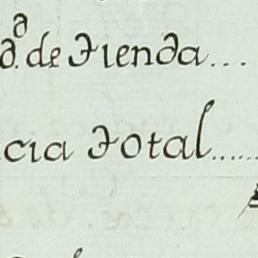 d.ª de Tienda...
cia Total......